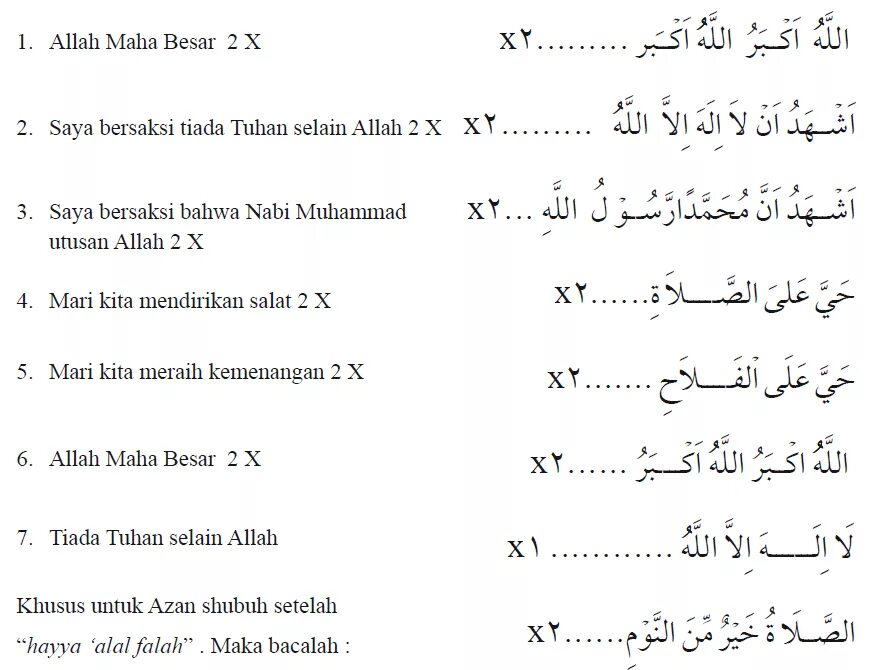 1. Allah Maha Besar 2 X اللَّهُ اَكْبَرُ اللَّهُ اَكْبَر ......... x٢
2. Saya bersaksi tiada Tuhan selain Allah 2 X اَشْهَدُ اَنْ لاَ اِلَهَ اِلاَّ اللَّهُ ......... x٢
3. Saya bersaksi bahwa Nabi Muhammad اَشْهَدُ اَنَّ مُحَمَّدًارَّسُوْلُ اللَّهِ ... x٢
utusan Allah 2 X
4. Mari kita mendirikan salat 2 X حَيَّ عَلىَ الصَّلاَةِ...... x٢
5. Mari kita meraih kemenangan 2 X حَيَّ عَلَى الْفَلاَحِ ....... x٢
6. Allah Maha Besar 2 X اللَّهُ اكْبَرُ اللَّهُ اَكْبَرُ ...... x٢
7. Tiada Tuhan selain Allah لَا اِلَهَ اِلاَّ اللَّهُ ............ x١
Khusus untuk Azan shubuh setelah
“hayya ‘alal falah” . Maka bacalah : الصَّلَاةُ خَيْرٌ مِّنَ النَّوْمِ...... x٢